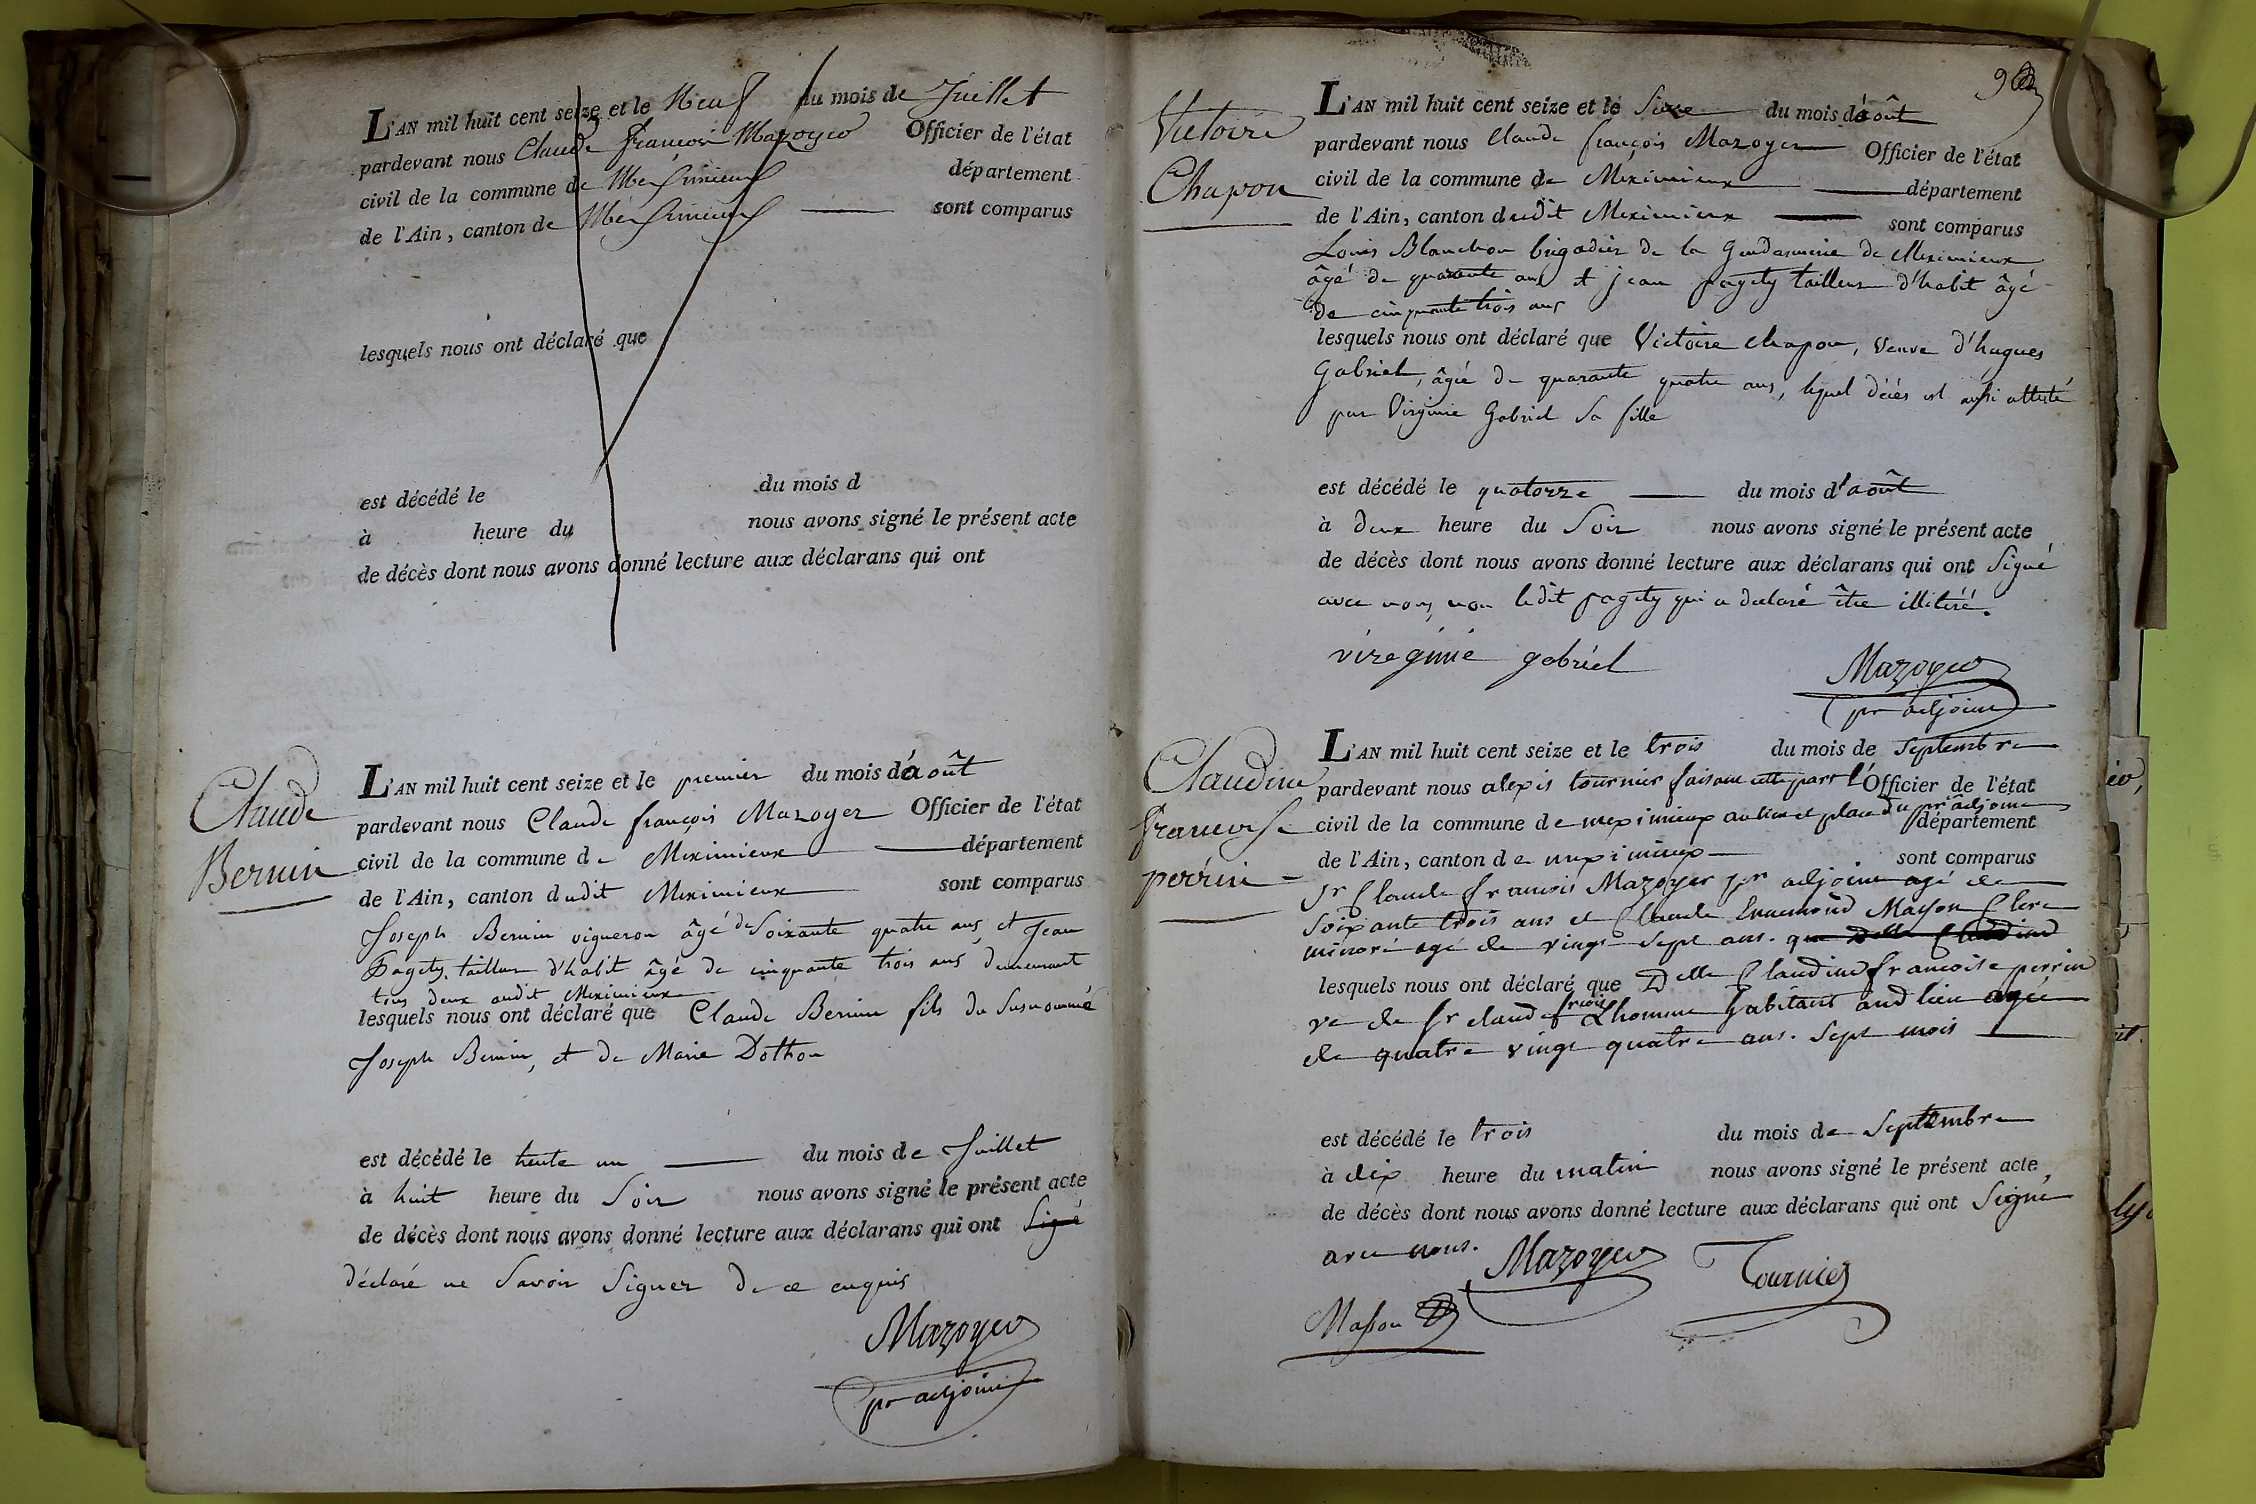 L'AN mil huit cent seize et le Neuf du mois de Juillet
pardevant nous Claude françois Mazoyer Officier de l'état
civil de la commune de Meximieux département
de l'Ain, canton de Meximieux sont comparus
lesquels nous ont déclaré que
est décédé le du mois d
à heure du nous avons signé le présent acte
de décès dont nous avons donné lecture aux déclarans qui ont
Claude
Bernin
L'AN mil huit cent seize et le premier du mois d'août
pardevant nous Claude françois Mazoyer Officier de l'état
civil de la commune de Meximieux département
de l'Ain, canton dudit Meximieux sont comparus
Joseph Bernin vigneron âgé de Soixante quatre ans et Jean
Pagety tailleur d'habit âgé de cinquante trois ans demeurant
tous deux audit Meximieux
lesquels nous ont déclaré que Claude Bernin fils du Susnommé
Joseph Bernin, et de Marie Dothon
est décédé le trente un du mois de Juillet
à huit heure du Soir nous avons signé le présent acte
de décès dont nous avons donné lecture aux déclarans qui ont Signé
déclaré ne Savoir Signer de ce enquis
Mazoyer
pr adjoint
98
Victoire
Chapon
L'AN mil huit cent seize et le Seize du mois d'août
pardevant nous Claude françois Mazoyer Officier de l'état
civil de la commune de Meximieux département
de l'Ain, canton dudit Meximieux sont comparus
Louis Blanchon brigadier de la Gendarmerie de Meximieux
âgé de quarante ans et jean pagety tailleur d'habit âgé
de cinquante trois ans
lesquels nous ont déclaré que Victoire Chapon, veuve d'hugues
Gabriel, âgée de quarante quatre ans, lequel décès est aussi attesté
par Virginie Gabriel Sa fille
est décédé le quatorze du mois d'août
à deux heure du Soir nous avons signé le présent acte
de décès dont nous avons donné lecture aux déclarans qui ont Signé
avec nous, non ledit pagety qui a déclaré être illitéré.
viregimie gabriel
Mazoyer
pr adjoint
Claudine
francoise
perrin
L'AN mil huit cent seize et le trois du mois de septembre
pardevant nous alexis tournier faisant cette part l'Officier de l'état
civil de la commune de meximieux au lieu et place du pr adjoint département
de l'Ain, canton de meximieux sont comparus
Sr Claude francois Mazoyer pr adjoint agé de
soixante trois ans et Claude Ennemond Masson Clerc
minoré agé de vingt sept ans. que Delle Claudine
lesquels nous ont déclaré que Delle Claudine francoise perrin
ve de Sr claude frcois Lhomme habitant audt lieu agée
de quatre vingt quatre ans. sept mois
est décédé le trois du mois de septembre
à dix heure du matin nous avons signé le présent acte
de décès dont nous avons donné lecture aux déclarans qui ont Signé
avec nous. Mazoyer Tournier
Masson